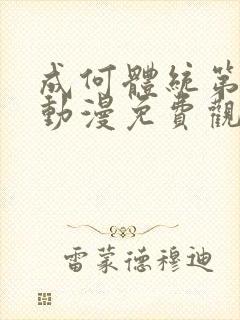 成何體統第
動漫免費觀
雷蒙德穆迪